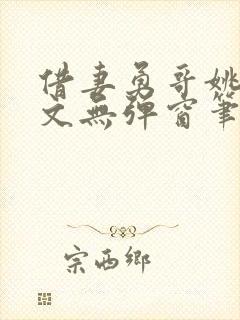 借妻勇哥姚
文無彈窗筆
宗西鄉